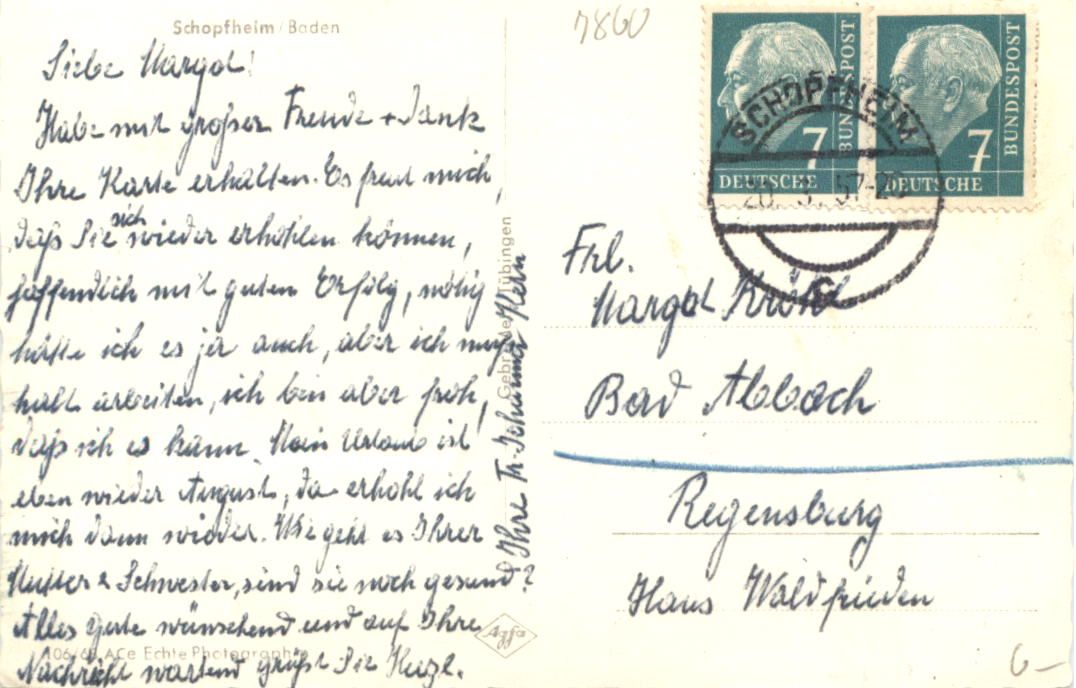 Schopfheim / Baden
Siebe Margot!
Habe mit großer Freude + Dank
Ihre Karte erhalten. Es freut mich,
daß Sie sich wieder erhohlen können,
hoffendlich mit guten Erfolg, nötig
hätte ich es ja auch, aber ich muß
halt arbeiten, ich bin aber froh,
daß ich es kann. Mein Urlaub ist
eben wieder August, da erhohl ich
mich dann wieder. Wie geht es Ihrer
Mutter & Schwester, sind sie noch gesund?
Alles gute wünschend und auf Ihre
Nachricht wartend grüßt Sie Herzl.
Ihre Fr. Johanna Kern
106/68 ACe Echte Photographie
Gebrüder Tübingen
Agfa
7860
7 DEUTSCHE BUNDESPOST
7 DEUTSCHE BUNDESPOST
SCHOPFHEIM
20. 3. 57-20
c
Frl.
Margot
Bad Abbach
Regensburg
Haus Waldfrieden
6-